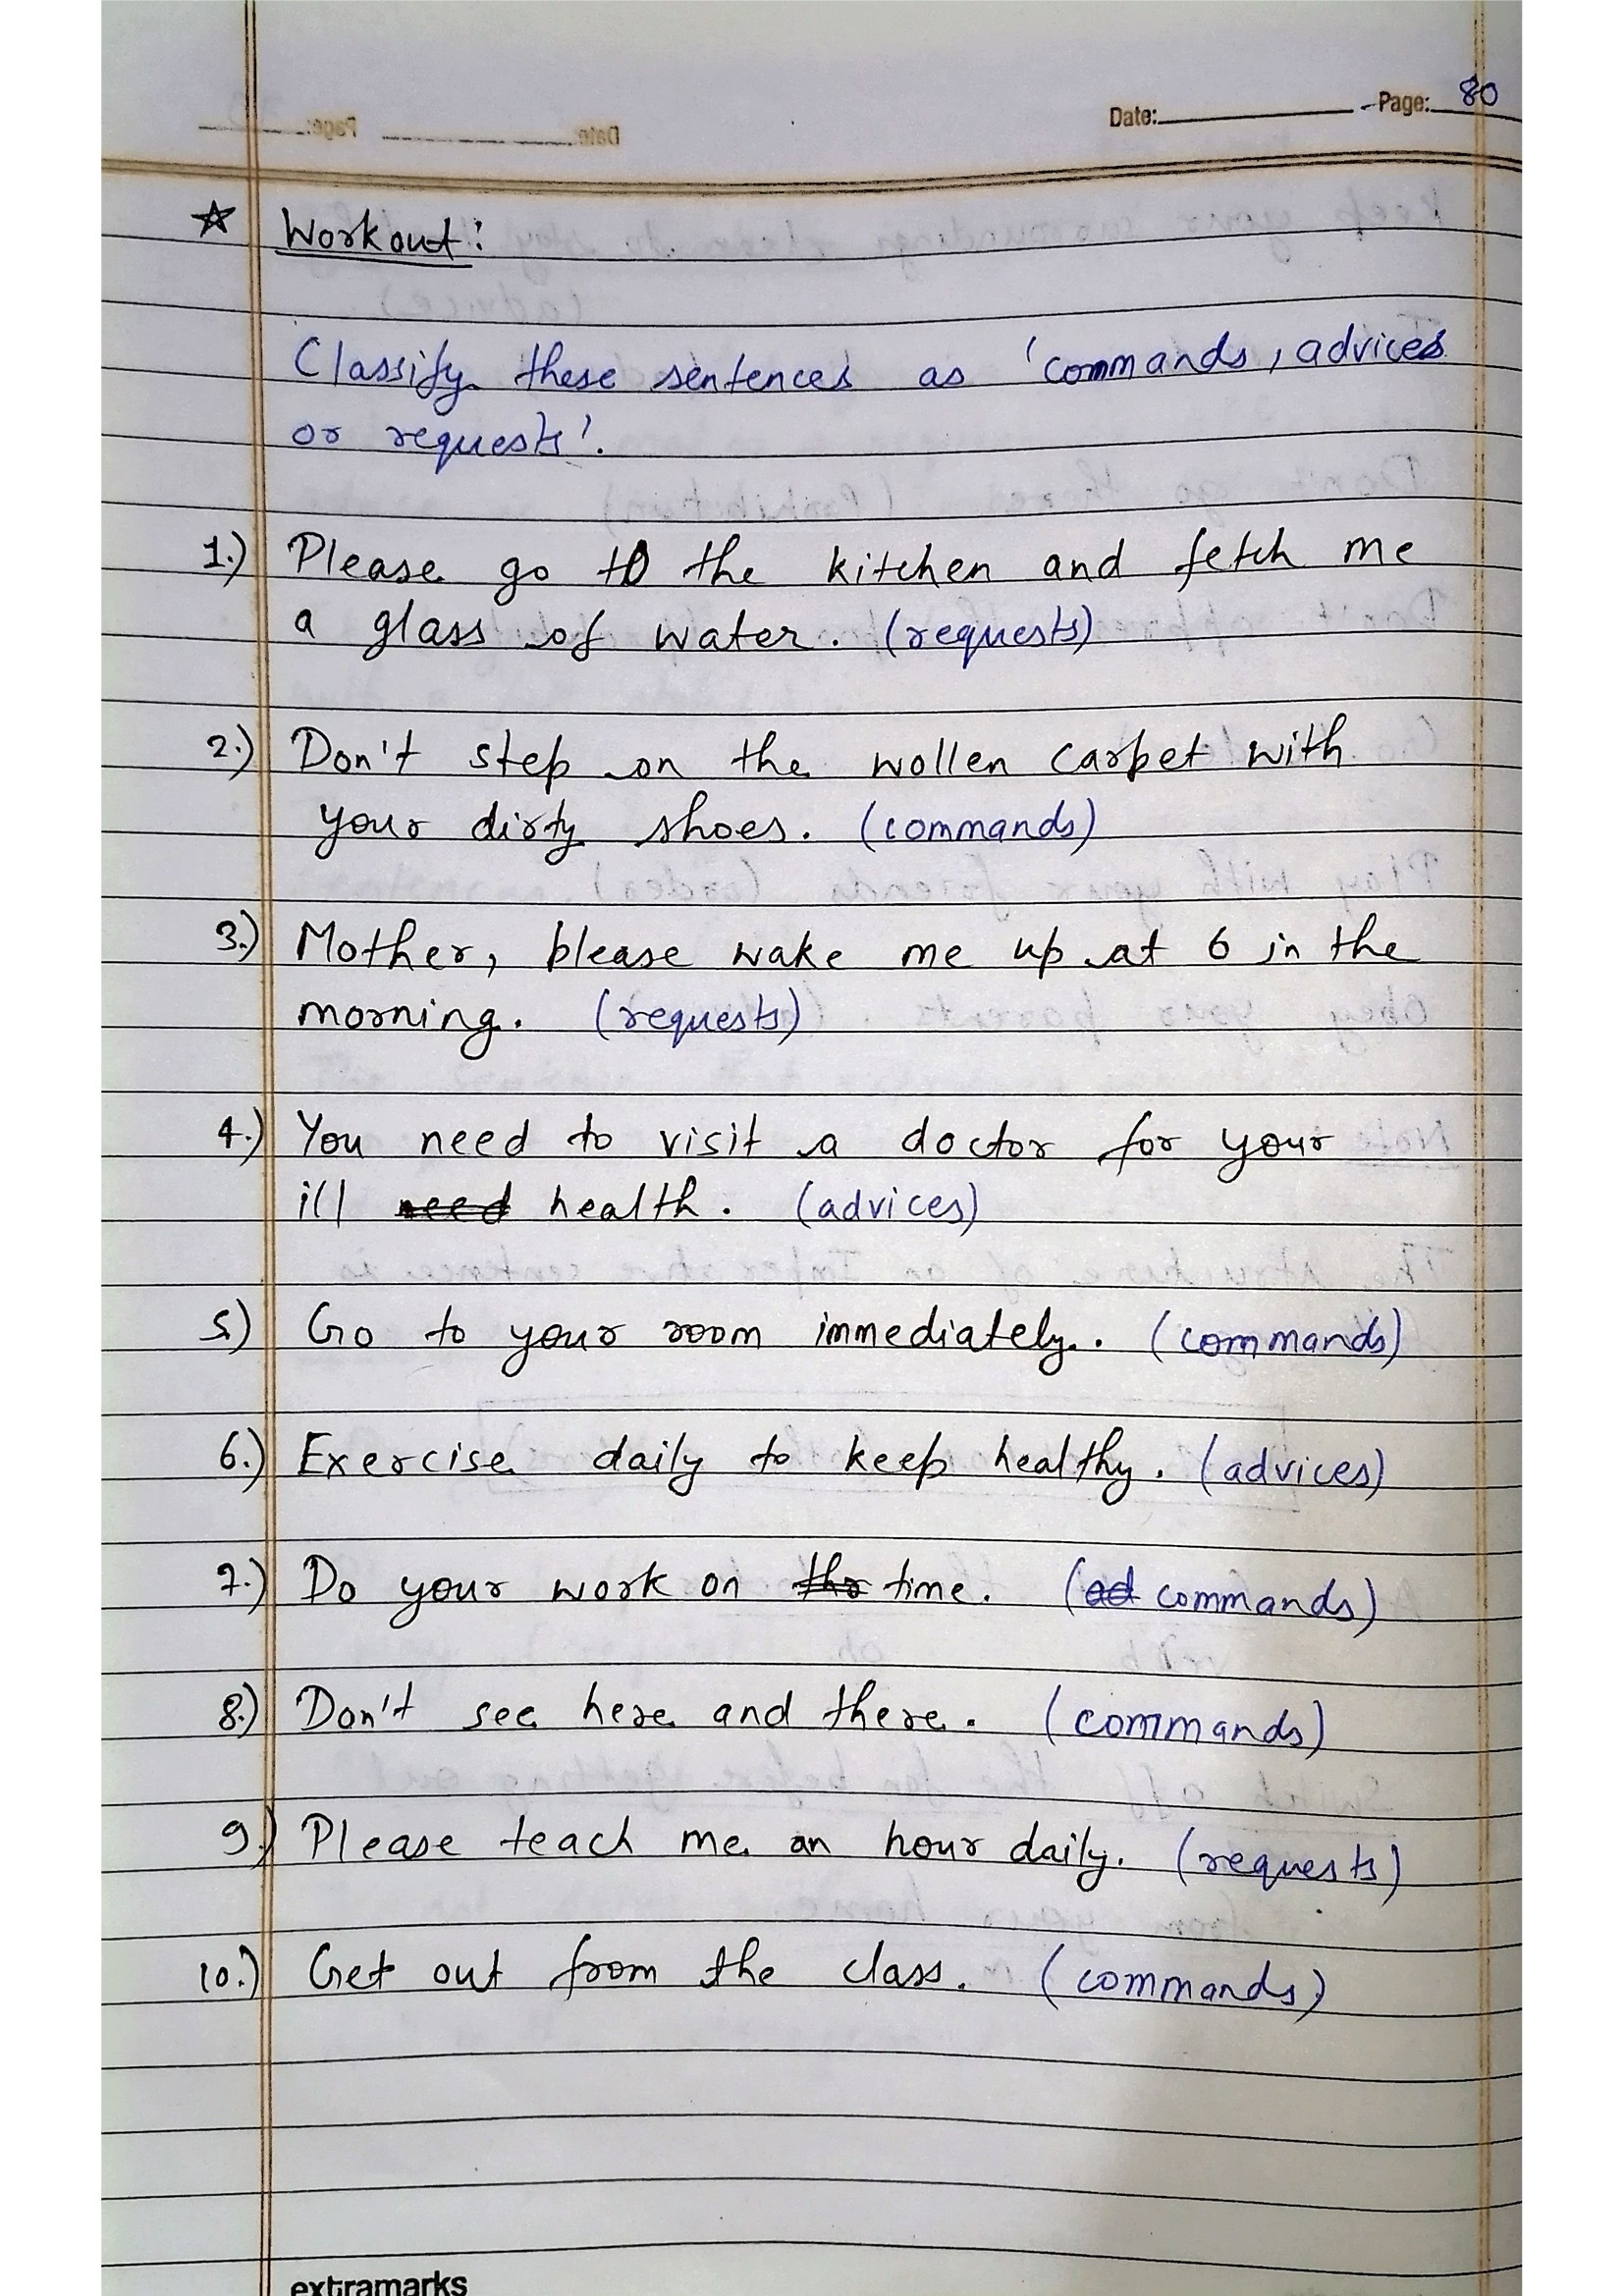 Date: Page: 80
☆ Workout:
Classify these sentences as 'commands, advices
or requests'.
1.) Please go to the kitchen and fetch me
a glass of water. (requests)
2.) Don't step on the wollen carpet with
your dirty shoes. (commands)
3.) Mother, please wake me up at 6 in the
morning. (requests)
4.) You need to visit a doctor for your
ill need health. (advices)
5.) Go to your room immediately. (commands)
6.) Exercise daily to keep healthy. (advices)
7.) Do your work on the time. (ad commands)
8.) Don't see here and there. (commands)
9.) Please teach me an hour daily. (requests)
10.) Get out from the class. (commands)
extramarks